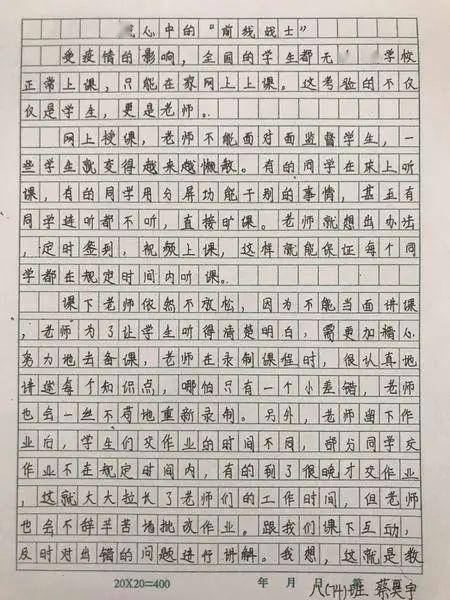 心中的“前线战士”
受疫情的影响，全国的学生都无 学校
正常上课，只能在家网上上课。这考验的不仅
仅是学生，更是老师。
网上授课，老师不能面对面监督学生，一
些学生就变得越来越懒散。有的同学在床上听
课，有的同学用分屏功能干别的事情，甚至有
同学连听都不听，直接旷课。老师就想出办法
，定时签到，视频上课，这样就能保证每个同
学都在规定时间内听课。
课下老师依然不放松，因为不能当面讲课
，老师为了让学生听得清楚明白，需更加精心
努力地去备课，老师在录制课程时，很认真地
讲述每个知识点，哪怕只有一个小差错，老师
也会一丝不苟地重新录制。另外，老师留下作
业后，学生们交作业的时间不同，部分同学交
作业不在规定时间内，有的到了很晚才交作业
，这就大大拉长了老师们的工作时间，但老师
也会不辞辛苦地批改作业。跟我们课下互动，
及时对出错的问题进行讲解。我想，这就是教
20X20=400 年 月 日 第
八(14)班 蔡昊宇